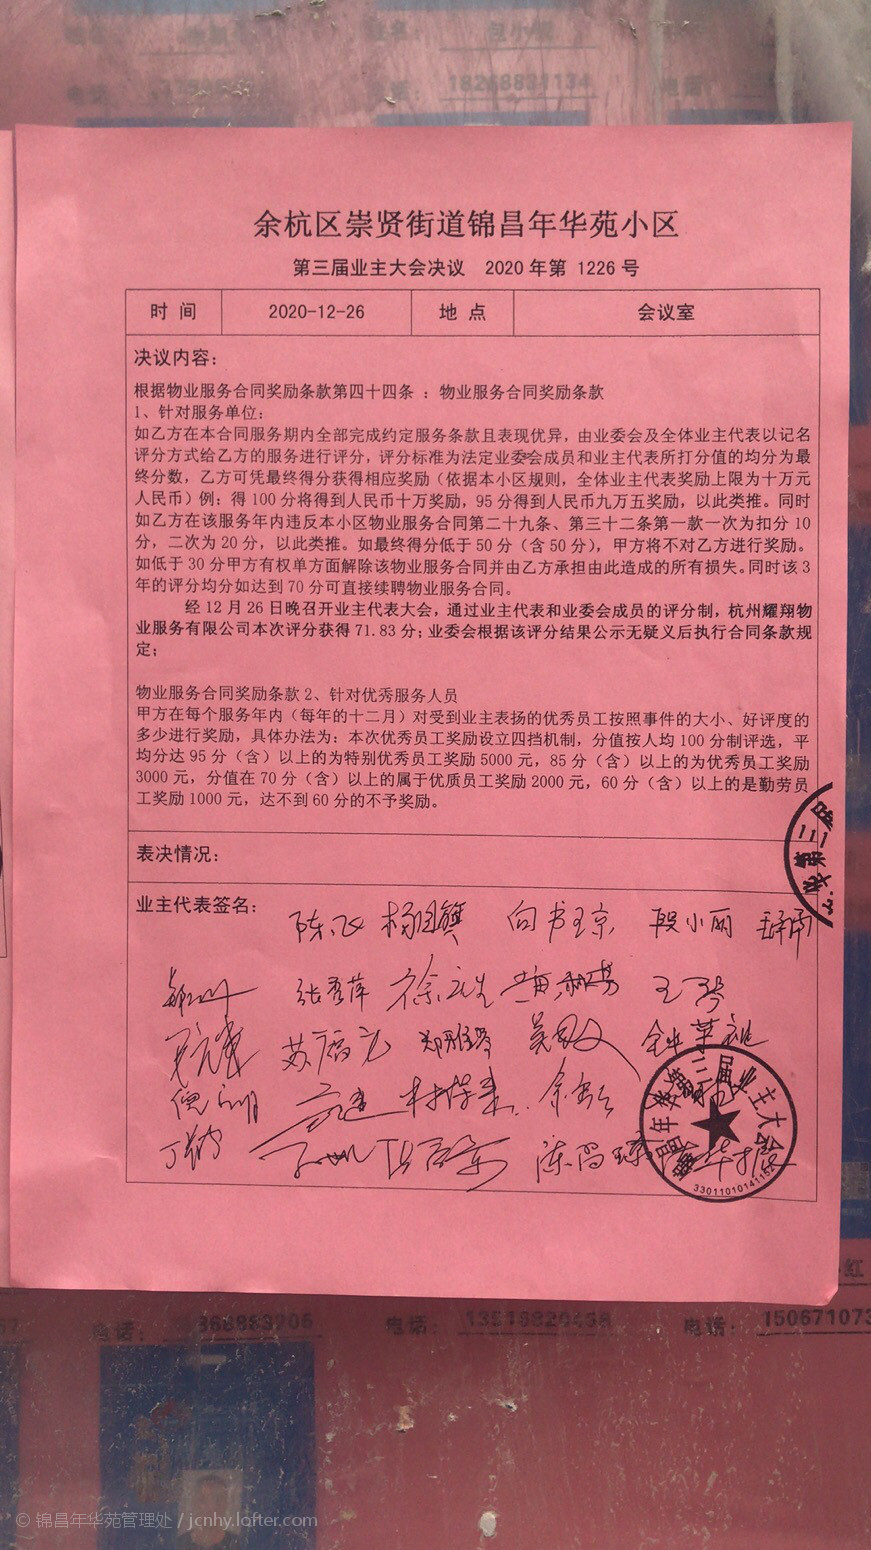 电话:
18268831134
电话:
余杭区崇贤街道锦昌年华苑小区
第三届业主大会决议 2020年第 1226 号
时 间 2020-12-26 地 点 会议室
决议内容：
根据物业服务合同奖励条款第四十四条 ：物业服务合同奖励条款
1、针对服务单位：
如乙方在本合同服务期内全部完成约定服务条款且表现优异，由业委会及全体业主代表以记名
评分方式给乙方的服务进行评分，评分标准为法定业委会成员和业主代表所打分值的均分为最
终分数，乙方可凭最终得分获得相应奖励（依据本小区规则，全体业主代表奖励上限为十万元
人民币）例：得100分将得到人民币十万奖励，95分得到人民币九万五奖励，以此类推。同时
如乙方在该服务年内违反本小区物业服务合同第二十九条、第三十二条第一款一次为扣分10
分，二次为20分，以此类推。如最终得分低于50分（含50分），甲方将不对乙方进行奖励。
如低于30分甲方有权单方面解除该物业服务合同并由乙方承担由此造成的所有损失。同时该3
年的评分均分如达到70分可直接续聘物业服务合同。
经12月26日晚召开业主代表大会，通过业主代表和业委会成员的评分制，杭州耀翔物
业服务有限公司本次评分获得71.83分；业委会根据该评分结果公示无疑义后执行合同条款规
定；
物业服务合同奖励条款2、针对优秀服务人员
甲方在每个服务年内（每年的十二月）对受到业主表扬的优秀员工按照事件的大小、好评度的
多少进行奖励，具体办法为：本次优秀员工奖励设立四挡机制，分值按人均100分制评选，平
均分达95分（含）以上的为特别优秀员工奖励5000元，85分（含）以上的为优秀员工奖励
3000元，分值在70分（含）以上的属于优质员工奖励2000元，60分（含）以上的是勤劳员
工奖励1000元，达不到60分的不予奖励。
第三届
表决情况：
业主代表签名：
陈飞 向书京 段小丽
张秀萍 徐元生 王琴
苏福元
陈昌
第三届业主大会
电话：
电话： 13516820438
电话： 150671073
红
© 锦昌年华苑管理处 / jcnhy.lofter.com